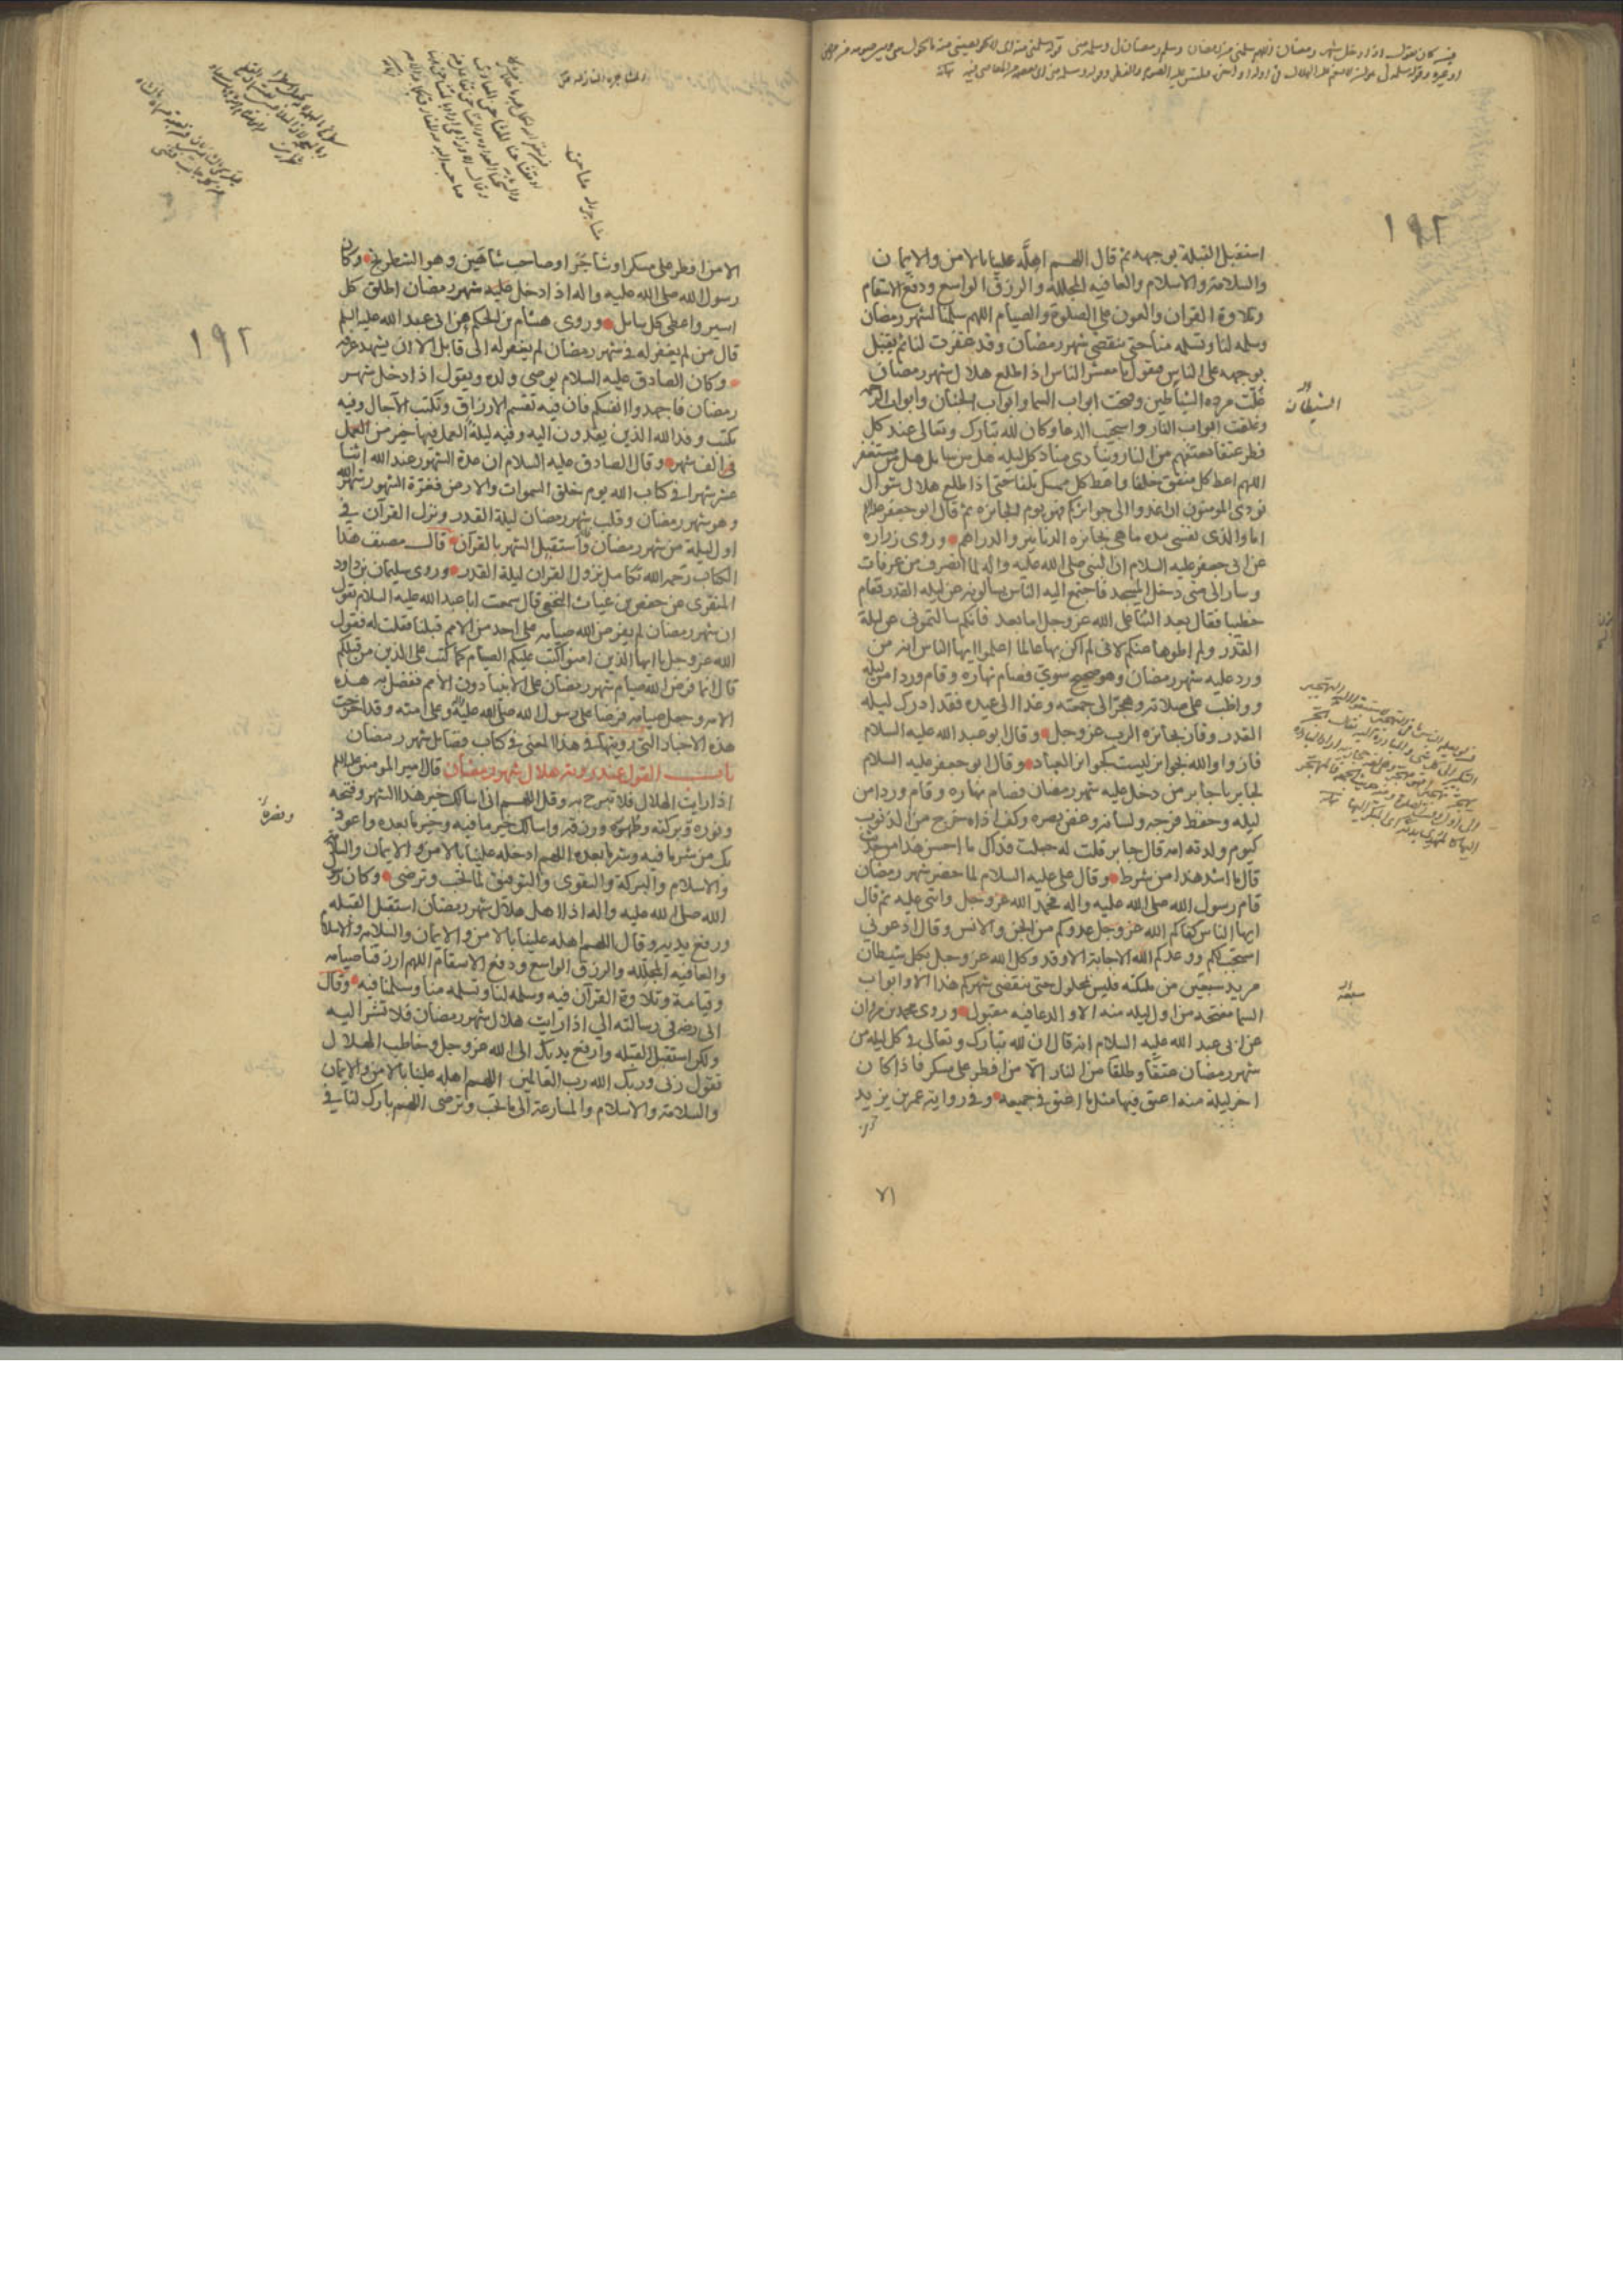 ١٩٢
استقبل القبلة بوجهه ثم قال اللهم اهلّه علينا بالامن والايمان
والسلامة والاسلام والعافيه المجللة والرزق الواسع ودفع الاسقام
وتلاوة القران والعون على الصلوة والصيام اللهم سلمنا لشهر رمضان
وسلمه لنا وتسلمه منا حتى ينقضى شهر رمضان وقد غفرت لنا ثم يقبل
بوجهه على الناس فيقول يا معشر الناس اذا طلع هلال شهر رمضان
غلّت مرده الشياطين وفتحت ابواب السما وابواب الجنان وابواب الرحمه
وغلقت ابواب النار واستجيب الدعا وكان لله تبارك وتعالى عند كل
فطر عتقا يعتقهم من النار وينادى مناد كل ليله هل من سايل هل من مستغفر
اللهم اعط كل منفق خلفا واعط كل ممسك تلفا حتى اذا طلع هلال شوال
نودى المومنون ان اغدوا الى جوايزكم فهو يوم الجايزه ثم قال ابو جعفر علیه السلام
اما والذى نفسى بيده ما هى بجايزه الدنانير والدراهم وروى زراره
عن ابى جعفر عليه السلام ان النبى صلى الله عليه واله لما انصرف من عرفات
وسار الى منى دخل المسجد فاجتمع اليه الناس يسالونه عن ليله القدر فقام
خطيبا فقال بعد الثنا على الله عز وجل اما بعد فانكم سالتمونى عن ليلة
القدر ولم اطوها عنكم لانى لم اكن بها عالما اعلموا ايها الناس انه من
ورد عليه شهر رمضان وهو صحيح سوىّ فصام نهاره وقام وردا من ليله
وواظب على صلاته وهجّر الى جمعته وغدا الى عيده فقد ادرك ليله
القدر وفاز بجايزه الرب عز وجل وقال ابو عبد الله عليه السلام
فازوا والله بجوايز ليست كجوايز العباد وقال ابو جعفر عليه السلام
لجابر يا جابر من دخل عليه شهر رمضان فصام نهاره وقام وردا من
ليله وحفظ فرجه ولسانه وغض بصره وكف اذاه خرج من الذنوب
كيوم ولدته امه قال جابر قلت له جعلت فداك ما احسن هذا من حديث
قال ما اشد هذا من شرط وقال على عليه السلام لما حضر شهر رمضان
قام رسول الله صلى الله عليه واله فحمد الله عز وجل واثنى عليه ثم قال
ايها الناس كفاكم الله عز وجل عدوكم من الجن والانس وقال ادعونى
استجب لكم ووعدكم الله الاجابة الا وقد وكل الله عز وجل بكل شيطان
مريد سبعين من ملئكته فليس بمحلول حتى ينقضى شهركم هذا الا وابواب
السما مفتحه من اول ليله منه الا والدعا فيه مقبول وروى محمد بن مروان
عن ابى عبد الله عليه السلام انه قال ان لله تبارك وتعالى فى كل ليله من
شهر رمضان عتقا وطلقا من النار الّا من افطر على مسكر فاذا كان
اخر ليلة منه اعتق فيها مثل ما اعتق فى جميعه وفى روايه عمر بن يزيد
الشيطان
سبعه
٧١
المشاجره المنازعه
مشاجر له مشاحن
١٩٢
الا من افطر على مسكر او مشاجرا او صاحب شاهين وهو الشطرنج وكان
رسول الله صلى الله عليه واله اذا دخل عليه شهر رمضان اطلق كل
اسير واعطى كل سايل وروى هشام بن الحكم عن ابى عبد الله عليه السلم
قال من لم يغفر له فى شهر رمضان لم يغفر له الى قابل الا ان يشهد عرفه
وكان الصادق عليه السلام يوصى ولده ويقول اذا دخل شهر
رمضان فاجهدوا انفسكم فان فيه تقسم الارزاق وتكتب الآجال وفيه
يكتب وفد الله الذين يفدون اليه وفيه ليلة العمل فيها خير من العمل
فى الف شهر وقال الصادق عليه السلام ان عدة الشهور عند الله اثنا
عشر شهرا فى كتاب الله يوم خلق السموات والارض فغرّة الشهور شهر الله
وهو شهر رمضان وقلب شهر رمضان ليلة القدر ونزل القرآن فى
اول ليلة من شهر رمضان فاستقبل الشهر بالقرآن قال مصنف هذا
الكتاب رحمه الله تكامل نزول القران ليلة القدر وروى سليمان بن داود
المنقرى عن حفص بن غياث النخعى قال سمعت ابا عبد الله عليه السلام يقول
ان شهر رمضان لم يفرض الله صيامه على احد من الامم قبلنا فقلت له فقول
الله عز وجل يا ايها الذين امنوا كتب عليكم الصيام كما كتب على الذين من قبلكم
قال انما فرض الله صيام شهر رمضان على الانبيا دون الامم ففضل به هذه
الامه وجعل صيامه فرضا على رسول الله صلى الله عليه وعلى امته وقد اخرجت
هذه الاخبار التى رويتها فى هذا المعنى فى كتاب فضايل شهر رمضان
باب القول عند رويه هلال شهر رمضان قال امير المومنين عليه السلام
اذا رايت الهلال فلا تبرح وقل اللهم انى اسالك خير هذا الشهر وفتحه
ونوره وبركته وطهوره ورزقه واسالك خير ما فيه وخير ما بعده واعوذ
بك من شر ما فيه وشر ما بعده اللهم ادخله علينا بالامن والايمان والسلامة
والاسلام والبركة والتقوى والتوفيق لما تحب وترضى وكان رسول
الله صلى الله عليه واله اذا اهل هلال شهر رمضان استقبل القبله
ورفع يديه وقال اللهم اهله علينا بالامن والايمان والسلامه والاسلام
والعافيه المجلله والرزق الواسع ودفع الاسقام اللهم ارزقنا صيامه
وقيامه وتلاوة القرآن فيه وسلمه لنا وتسلمه منا وسلمنا فيه وقال
ابى رض فى رسالته الى اذا رايت هلال شهر رمضان فلا تشر اليه
ولكن استقبل القبله وارفع يديك الى الله عز وجل وخاطب الهلال
تقول ربى وربك الله رب العالمين اللهم اهله علينا بالامن والايمان
والسلامه والاسلام والمسارعة الى ما تحب وترضى اللهم بارك لنا فى
ونصره